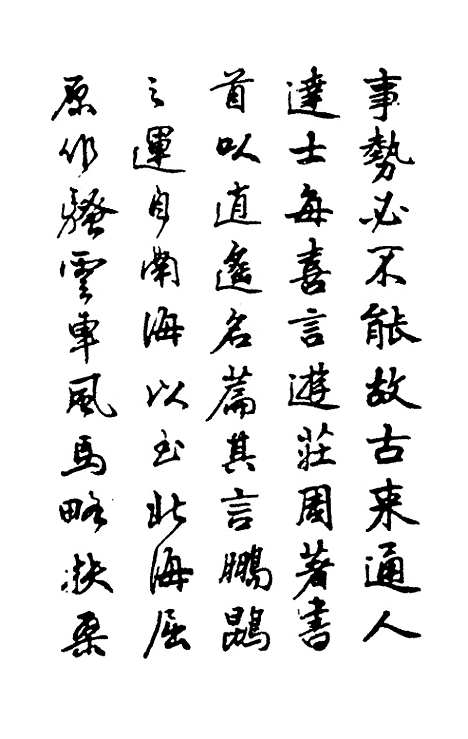 事勢必不能故古来通人
達士每喜言遊莊周著書
首以逍遙名篇其言鵬鵾
之運自南海以至北海屈
原作騷雲車風馬略扶桑